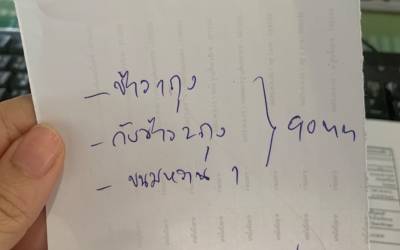 - ข้าว 1 ถุง
- กับข้าว 2 ถุง } 90 บาท
- ขนมหวาน 1